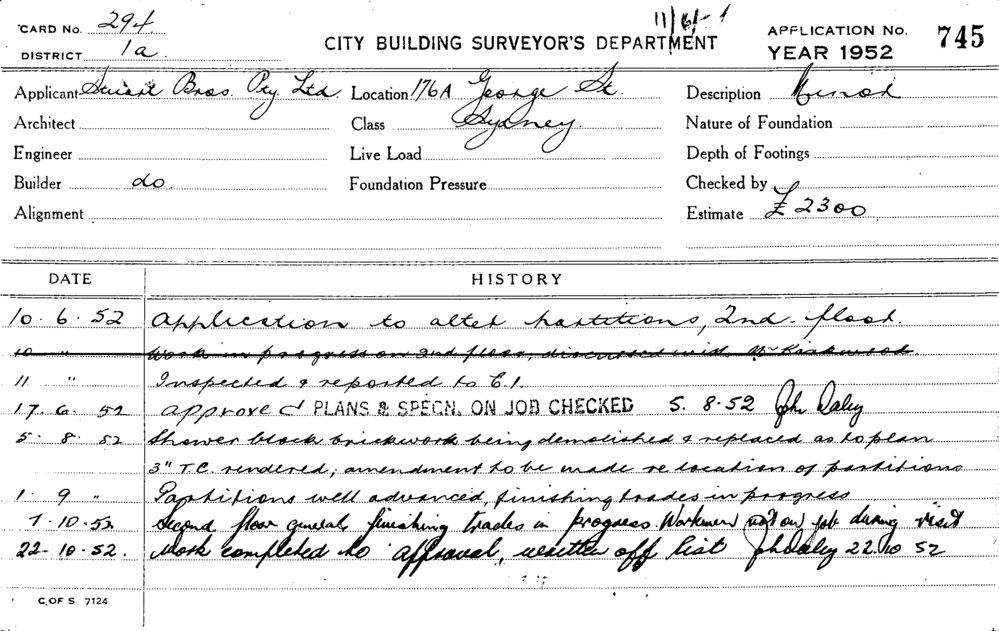 CARD No. 294. CITY BUILDING SURVEYOR'S DEPARTMENT 11/6/- APPLICATION No. 745
DISTRICT 1a. YEAR 1952
Applicant Stuart Bros. Pty. Ltd. Location 176A George St. Description Minor
Architect Class Sydney. Nature of Foundation
Engineer Live Load Depth of Footings
Builder do. Foundation Pressure Checked by
Alignment Estimate £ 2300
DATE HISTORY
10. 6. 52 Application to alter partitions, 2nd. floor.
10 " Work in progress on 2nd floor, discussed with Mr Kirkwood.
11 " Inspected & reported to C.I.
17. 6. 52 Approved PLANS & SPECN. ON JOB CHECKED 5. 8. 52 John Daley
5. 8. 52 Shower block brickwork being demolished & replaced as to plan
3" T.C. rendered; amendment to be made re location of partitions
1 9 " Partitions well advanced, finishing trades in progress
7. 10. 52 Second floor general finishing trades in progress. Workmen not on job during visit
22. 10. 52. Work completed to approval, written off list John Daley 22 10 52
C. OF S 7124